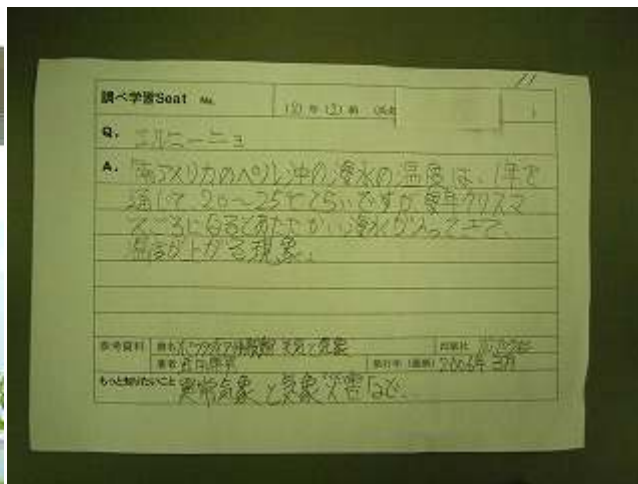 調べ学習Seat No.
Q. エルニーニョ
A. 南アメリカのペルー沖の海水の温度は、1年を
通じて、20〜25℃ぐらいですが、毎年クリスマ
スごろになるとあたたかい海水が入ってきて、
温度が上がる現象。
参考資料 書名 ポプラディア情報館 天気と気象 出版社
著者 発行年(西暦) 2006年 3月
もっと知りたいこと 異常気象と気象災害など。